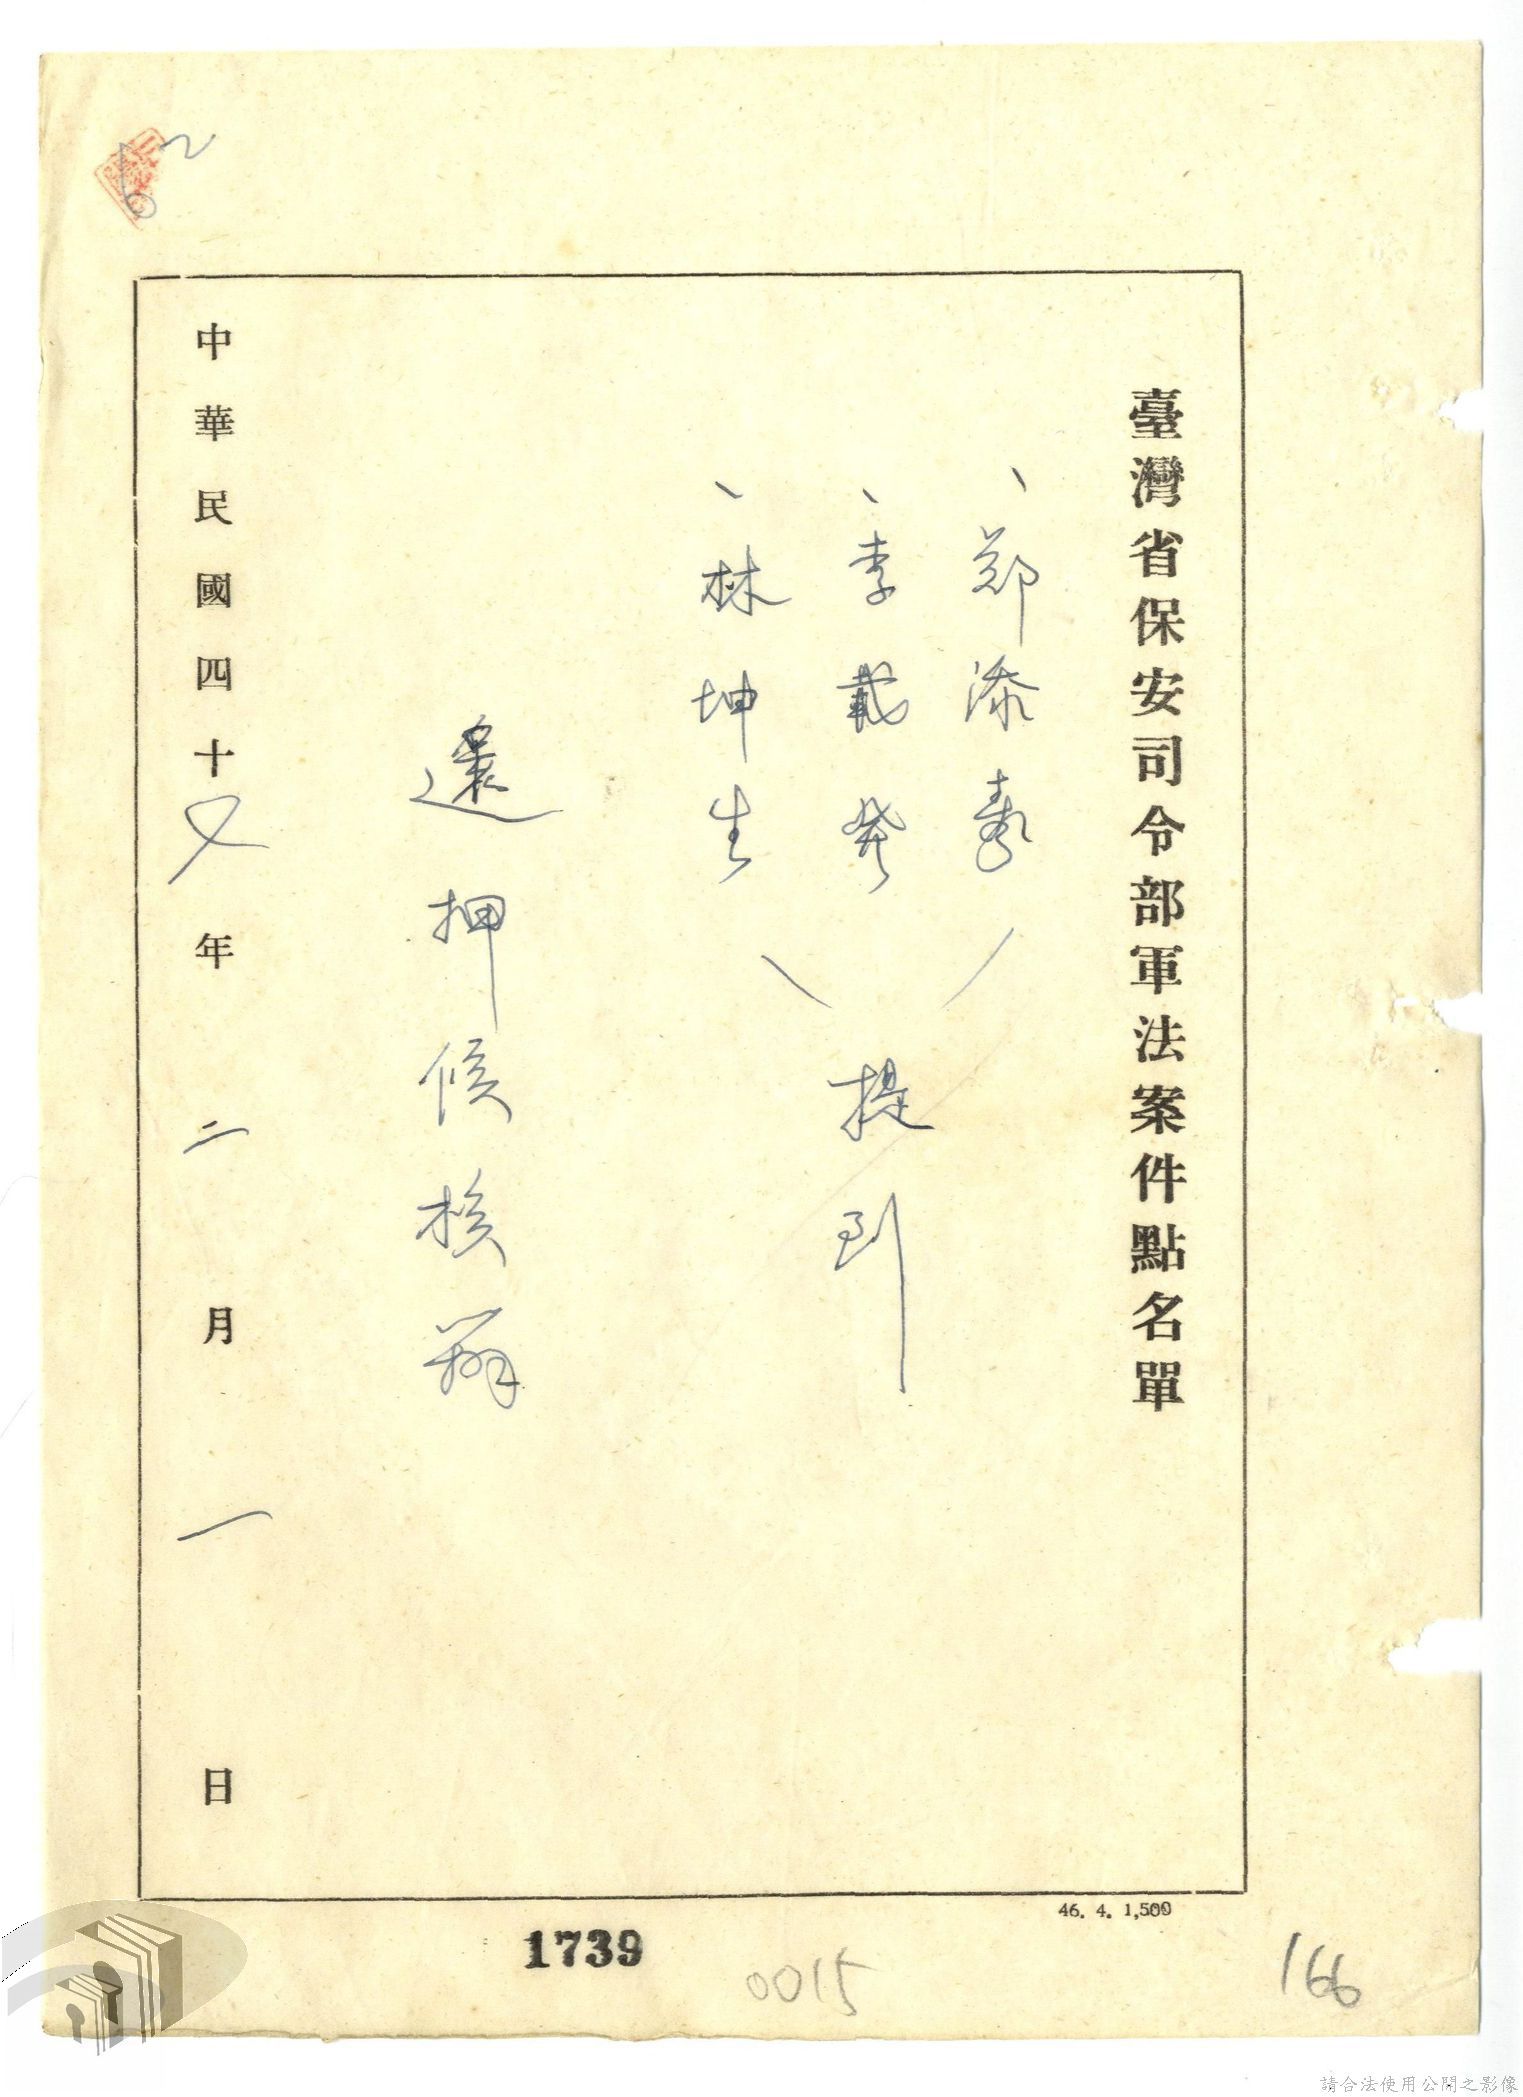 臺灣省保安司令部軍法案件點名單
、鄭添壽
、李戴發
、林坤生
提到
還押候核辦
中華民國四十七年二月一日
46. 4. 1,500
1739
0015
166
請合法使用公開之影像